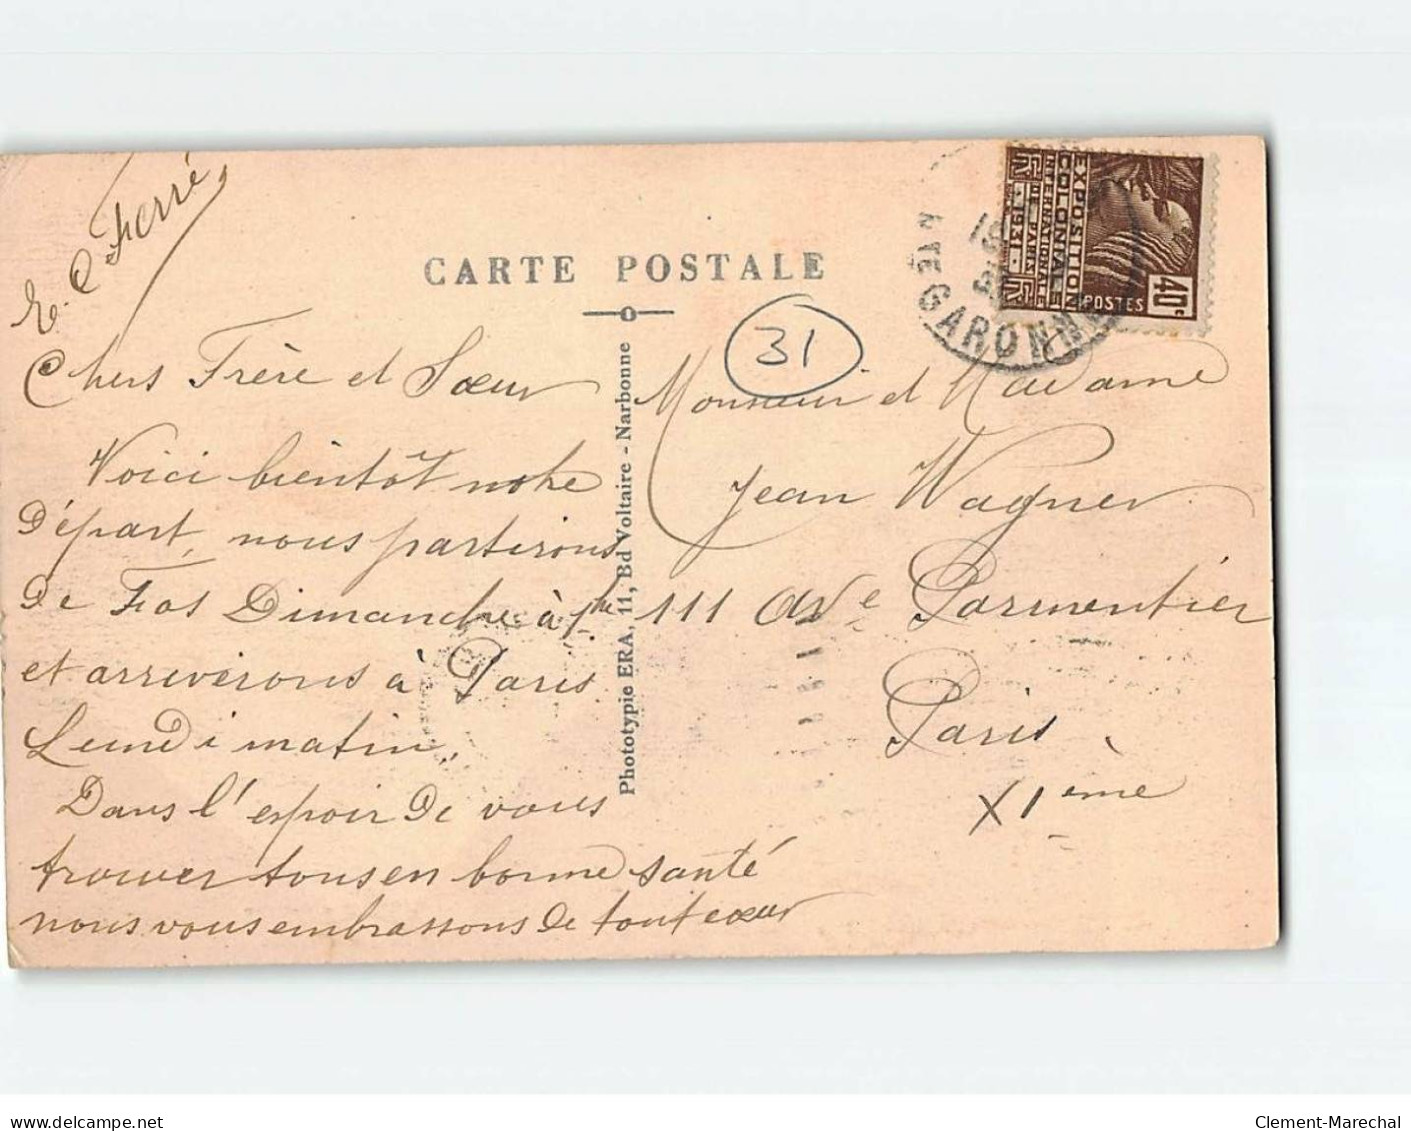 E. C Ferré
CARTE POSTALE
Chers Frère et Sœur
Voici bientôt notre
Départ, nous partirons
De Fos Dimanche à
et arriverons à Paris
Lundi matin.
Dans l'espoir De vous
trouver tous en bonne santé
nous vous embrassons De tout cœur
Phototypie ERA, 11, Bd Voltaire - Narbonne
31
Monsieur et Madame
Jean Wagner
111 Ave Parmentier
Paris
XIème
EXPOSITION
COLONIALE
INTERNATIONALE
PARIS
1931
POSTES
40c
HTE GARONNE
Clement-Marechal